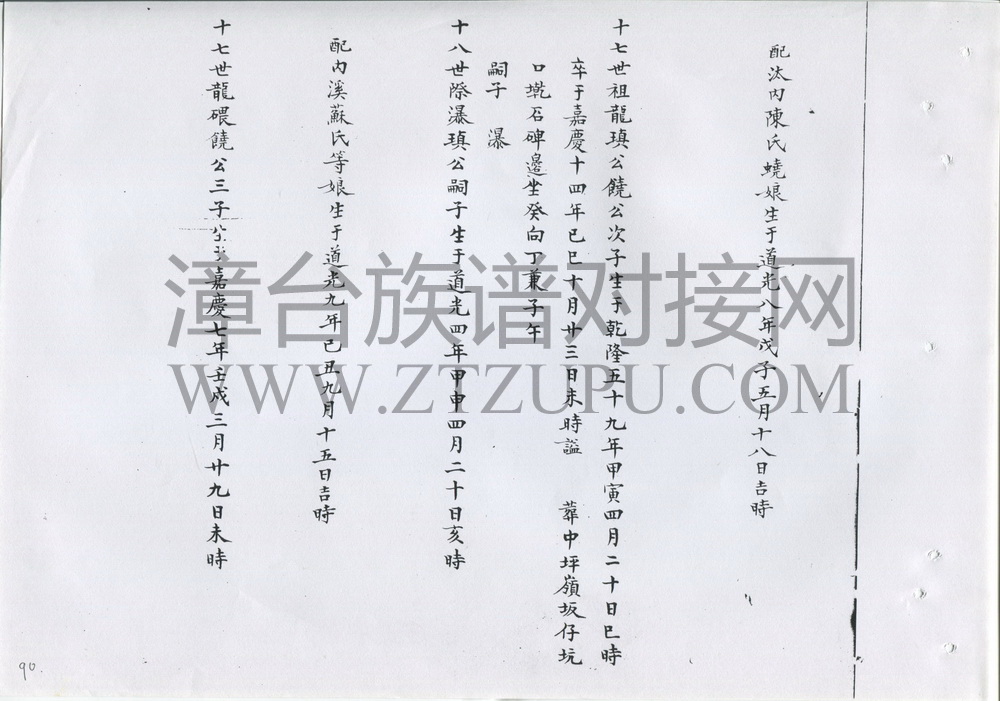 配汰内陳氏蟯娘生于道光八年戊子五月十八日吉時
十七世祖龍瑱公饒公次子生于乾隆五十九年甲寅四月二十日巳時
卒于嘉慶十四年巳巳十月廿三日未時謚 葬中坪嶺坂仔坑
口墘石碑邊坐癸向丁兼子午
嗣子 瀑
十八世際瀑瑱公嗣子生于道光四年甲申四月二十日亥時
配内溪蘇氏等娘生于道光九年己丑九月十五日吉時
十七世龍碨饒公三子生于嘉慶七年壬戌三月廿九日未時
漳台族谱对接网
WWW.ZTZUPU.COM
90